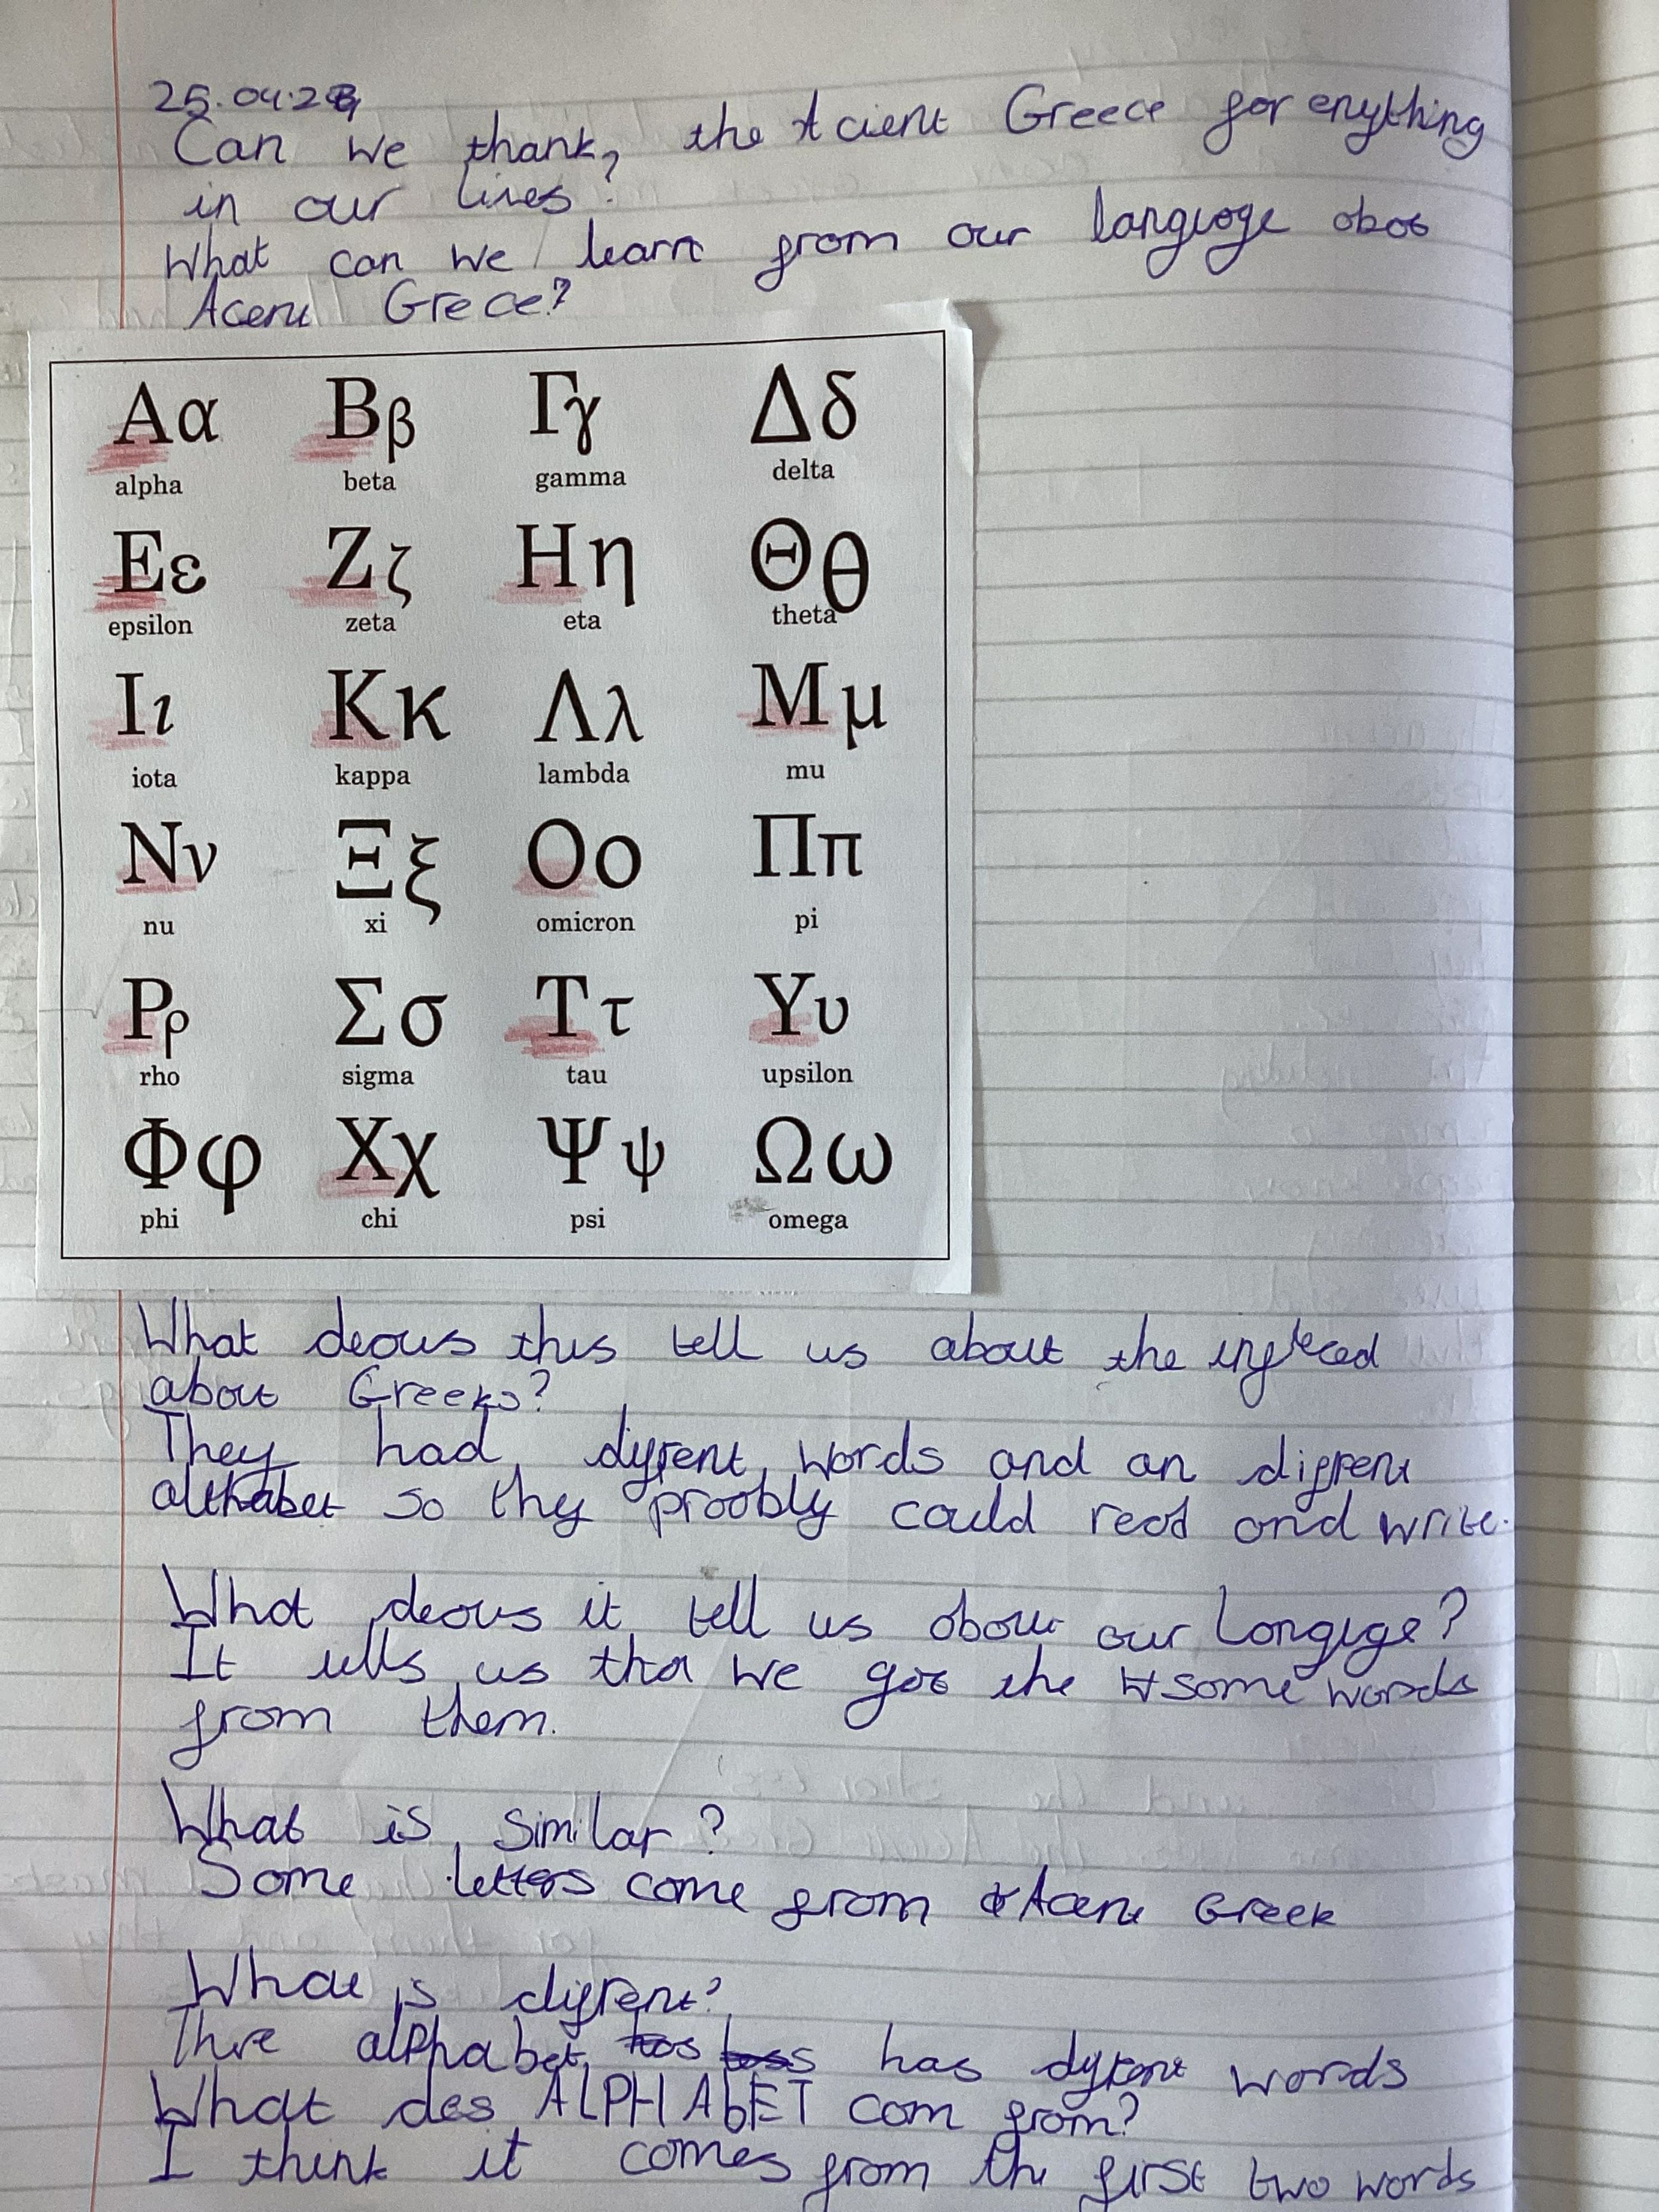 25.04.24
Can we thank, the Acient Greece for enything
in our lives?
What can we learn from our languoge obot
Acent Grece?
Αα Ββ Γγ Δδ
alpha beta gamma delta
Εε Ζζ Ηη Θθ
epsilon zeta eta theta
Ιι Κκ Λλ Μμ
iota kappa lambda mu
Νν Ξξ Οο Ππ
nu xi omicron pi
Ρρ Σσ Ττ Υυ
rho sigma tau upsilon
Φφ Χχ Ψψ Ωω
phi chi psi omega
What deous this tell us about the
about Greeks?
They had diffrent words and an diffrent
althabet so they proobly could read and write.
What deous it tell us obout our Longuge?
It tells us that we got the some words
from them.
What is similar?
Some letters come from Acent Greek
What is diffrent?
Thre alphabet has diffrent words
What des ALPHAbET com from?
I think it comes from the first two words